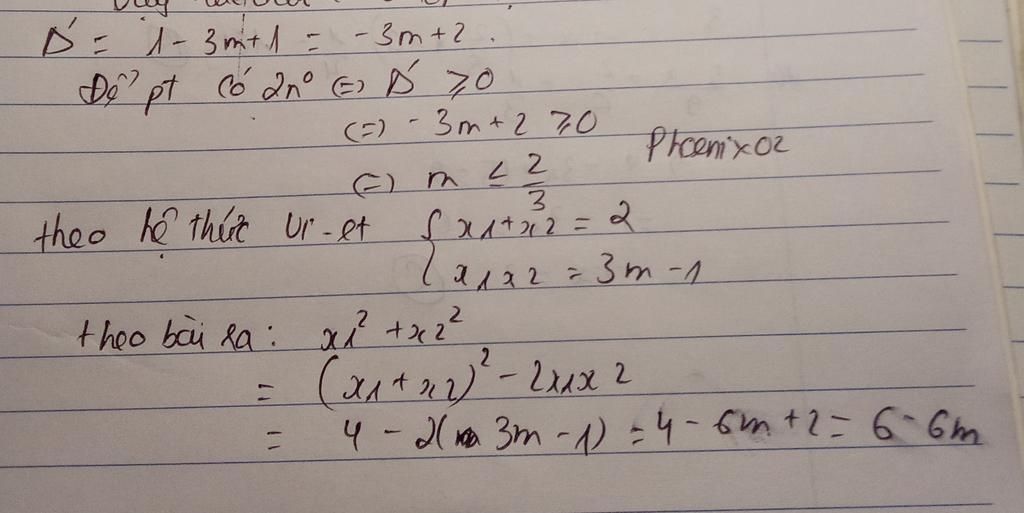 Δ' = 1 - 3m + 1 = -3m + 2.
Để pt có 2n⁰ (=) Δ' ≥ 0
(=) - 3m + 2 ≥ 0
Phoenix02
(=) m ≤ 2/3
theo hệ thức Vi-et { x1 + x2 = 2
x1x2 = 3m - 1
theo bài ra: x1² + x2²
= (x1 + x2)² - 2x1x2
= 4 - 2(3m - 1) = 4 - 6m + 2 = 6 - 6m